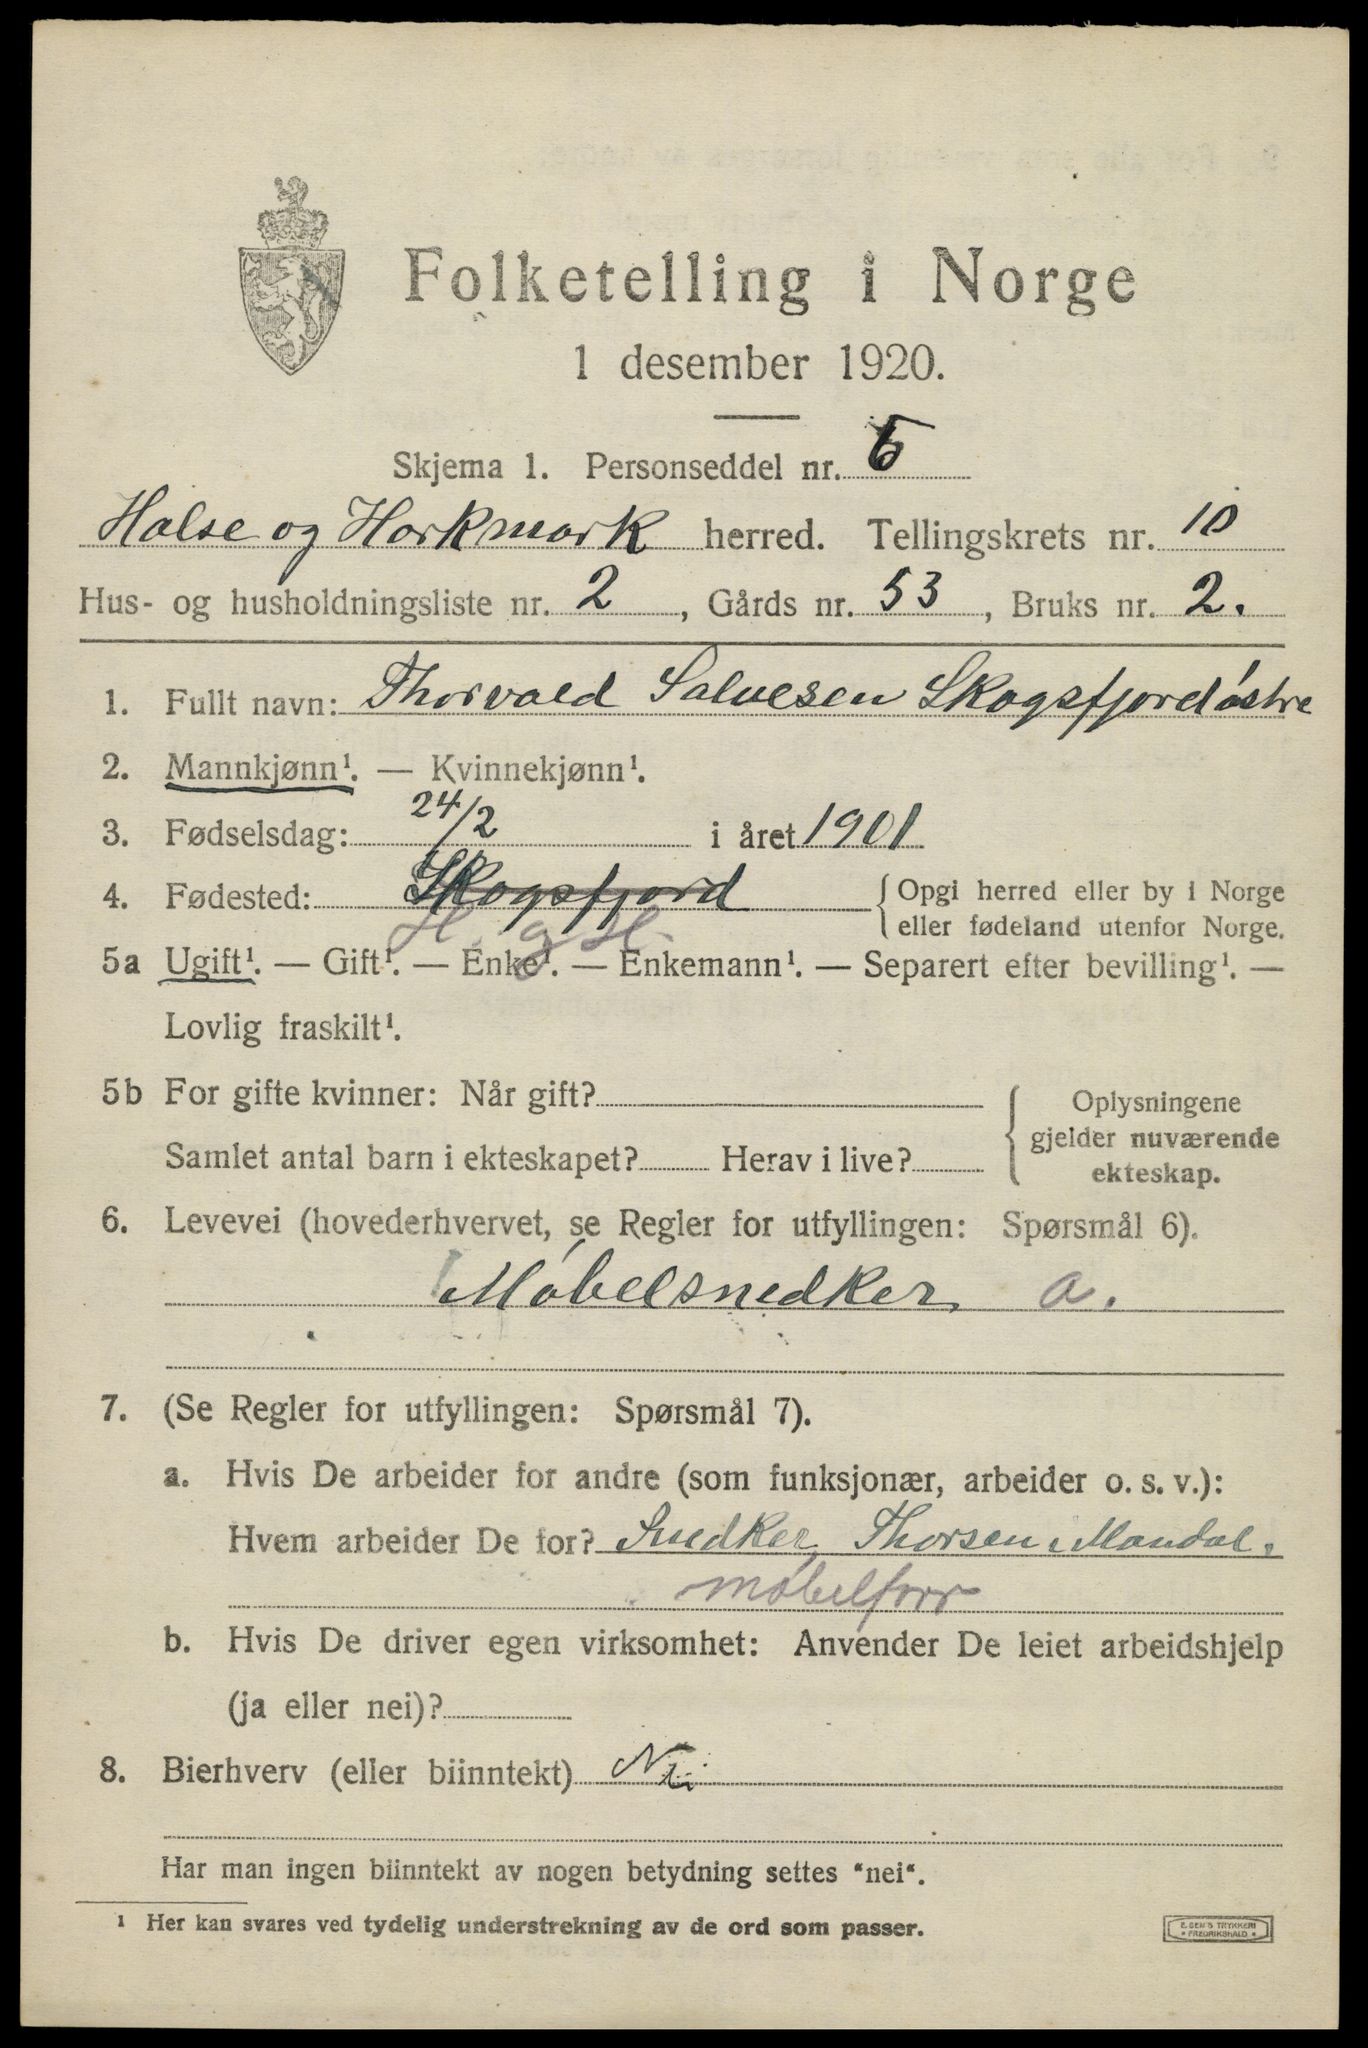 Folketelling i Norge
1 desember 1920.
Skjema 1. Personseddel nr. 6
Halse og Harkmark herred. Tellingskrets nr. 10
Hus- og husholdningsliste nr. 2, Gårds nr. 53, Bruks nr. 2.
1. Fullt navn: Thorvald Salvesen Skogsfjord østre
2. Mannkjønn¹. — Kvinnekjønn¹.
3. Fødselsdag: 24/2 i året 1901
4. Fødested: Skogsfjord { Opgi herred eller by i Norge
eller fødeland utenfor Norge.
H. g H.
5a Ugift¹. — Gift¹. — Enke¹. — Enkemann¹. — Separert efter bevilling¹. —
Lovlig fraskilt¹.
5b For gifte kvinner: Når gift?
Samlet antal barn i ekteskapet? Herav i live?
{ Oplysningene
gjelder nuværende
ekteskap.
6. Levevei (hovederhvervet, se Regler for utfyllingen: Spørsmål 6).
Møbelsnedker a.
7. (Se Regler for utfyllingen: Spørsmål 7).
a. Hvis De arbeider for andre (som funksjonær, arbeider o. s. v.):
Hvem arbeider De for? Snedker Thorsen, Mandal.
møbelforr
b. Hvis De driver egen virksomhet: Anvender De leiet arbeidshjelp
(ja eller nei)?
8. Bierhverv (eller biinntekt) Nei
Har man ingen biinntekt av nogen betydning settes "nei".
¹ Her kan svares ved tydelig understrekning av de ord som passer.
E. SEM'S TRYKKERI
* FREDRIKSHALD *